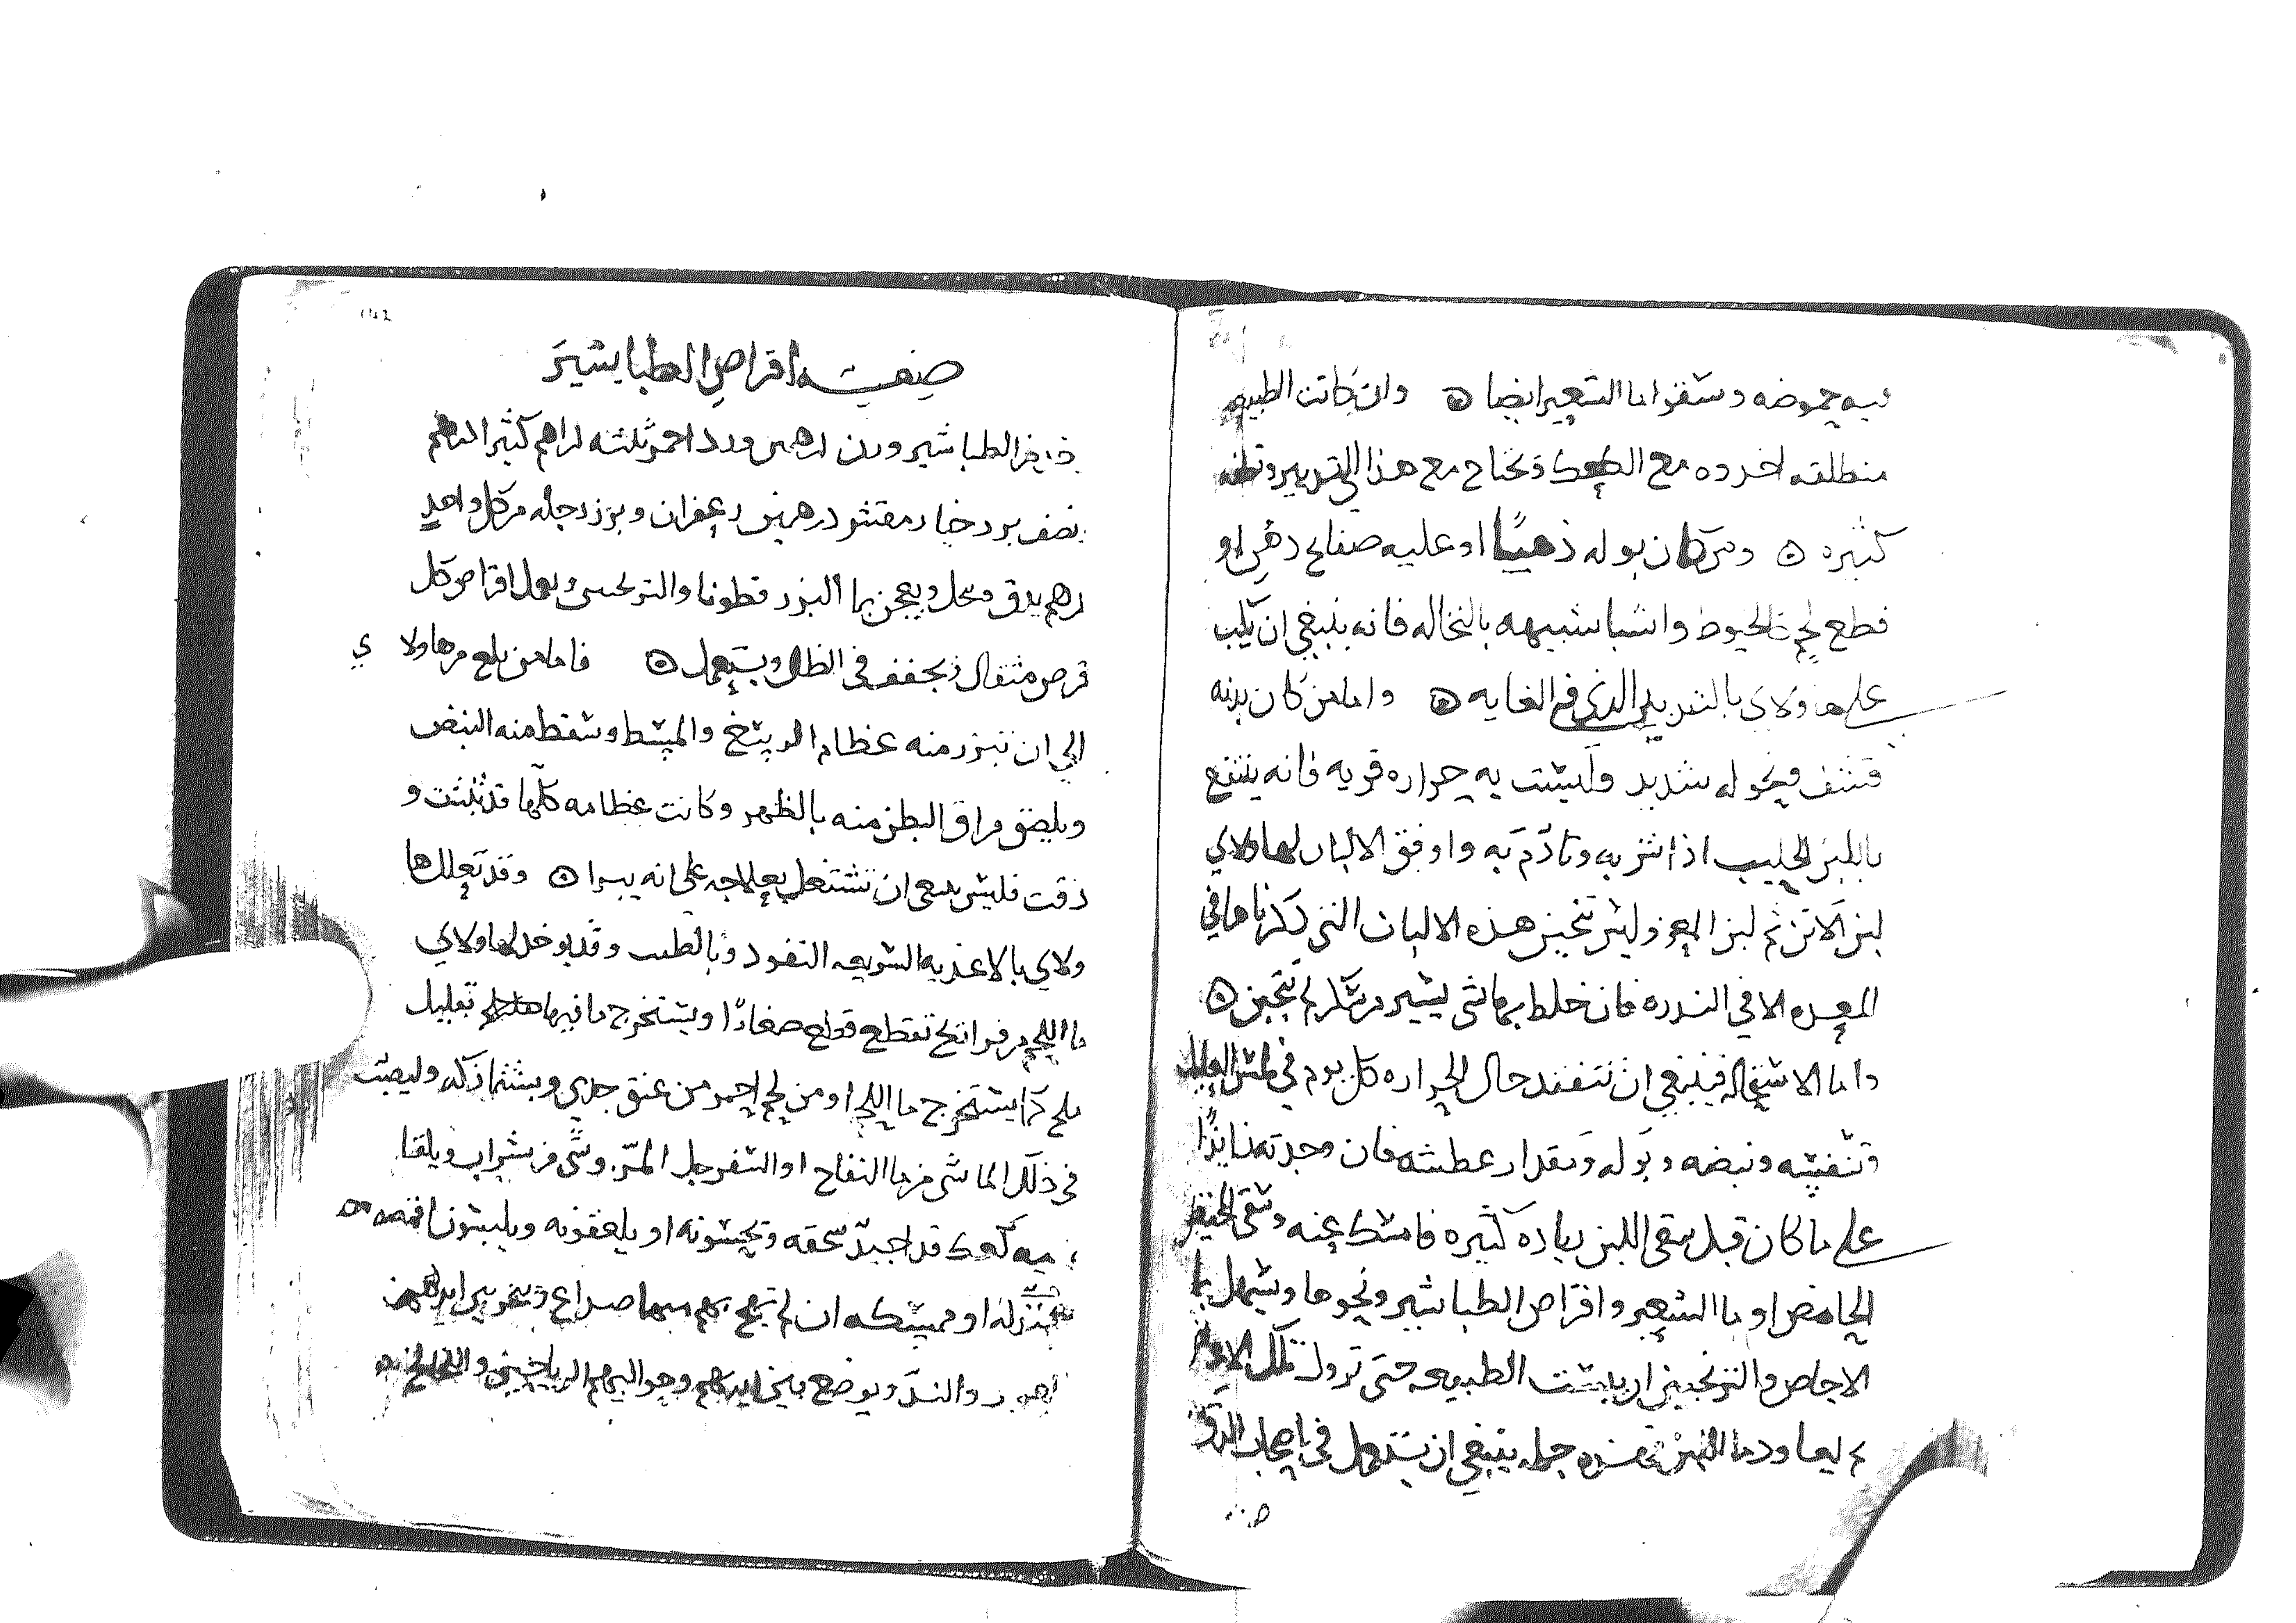 فيه حموضه وسقوا ما الشعير ايضا ۞ وان كانت الطبيعه
منطلقه اخدوه مع الكعك وتحتاج مع هذا الى تدبير
كثيره ۞ ومن كان بوله ذهبيا او عليه صفايح دهن او
قطع لحم كالخيوط واشيا شبيهه بالنخاله فانه ينبغي ان يكب
على هاولاي بالتدبير الذي في الغايه ۞ واما من كان بدنه
قشف ونحوله شديد وليست به حراره قويه فانه ينتفع
باللبن الحليب اذا شربه وتادم به واوفق الالبان لهاولاي
لبن الاتن ثم لبن المعز وليس تتجبن هذه الالبان التي ذكرناها في
المعده الا في الندره فان خلط بها شي يسير من سكر لم تتجبن ۞
واما الاستحاله فينبغي ان تتفقد حال الحراره كل يوم في لمس العليل
وتنفسه ونبضه وبوله ومقدار عطشه فان وجدته زايدا
على ما كان قبل سقى اللبن زياده كثيره فامسك عنه وتسقى المخيض
الحامض او ما الشعير واقراص الطباشير ونحوها ويسهل بما
الاجاص والترنجبين ان يبست الطبيعه حتى تزول تلك الاعراض
ثم يعاود ما اللبن فهذه جمله ينبغي ان تستعمل في اصحاب الدق
صفة اقراص الطباشير
الطباشير وزن درهمين ورد احمر ثلثه دراهم كثيرا
نصف بزر خيار مقشر درهمين زعفران وبزر رجله من كل واحد
درهم يدق وينخل ويعجن بما البزر قطونا والترنجبين ويعمل اقراص كل
قرص مثقال ويجفف في الظل ويستعمل ۞ فاما من بلغ من هاولا ي
الى ان تبرز منه عظام الرسغ والمشط وسقط منه النبض
ويلصق مراق البطن منه بالظهر وكانت عظامه كلها قد نتئت و
دقت فليس ينبغي ان تشتغل بعلاجه على انه يبرا ۞ وقد تعلل ها
ولاي بالاغذيه السريعه النفوذ وبالطيب وقد يوخذ لهاولاي
ما اللحم من فراريج تقطع قطع صغارا ويستخرج ما فيها بقليل
ملح كما يستخرج ما اللحم او من لحم احمر من عنق جدي وبشتمازكه وليصب
في ذلك الما شي من ما التفاح او السفرجل المز وشي من شراب ويلقا
فيه كعك قد اجيد سحقه ويحسونه او يلعقونه ويلبسون اقمصه
او ممسكه ان لم تهج بهم صداع ويقرب
والند ويوضع بين ايديهم وحواليهم الرياحين